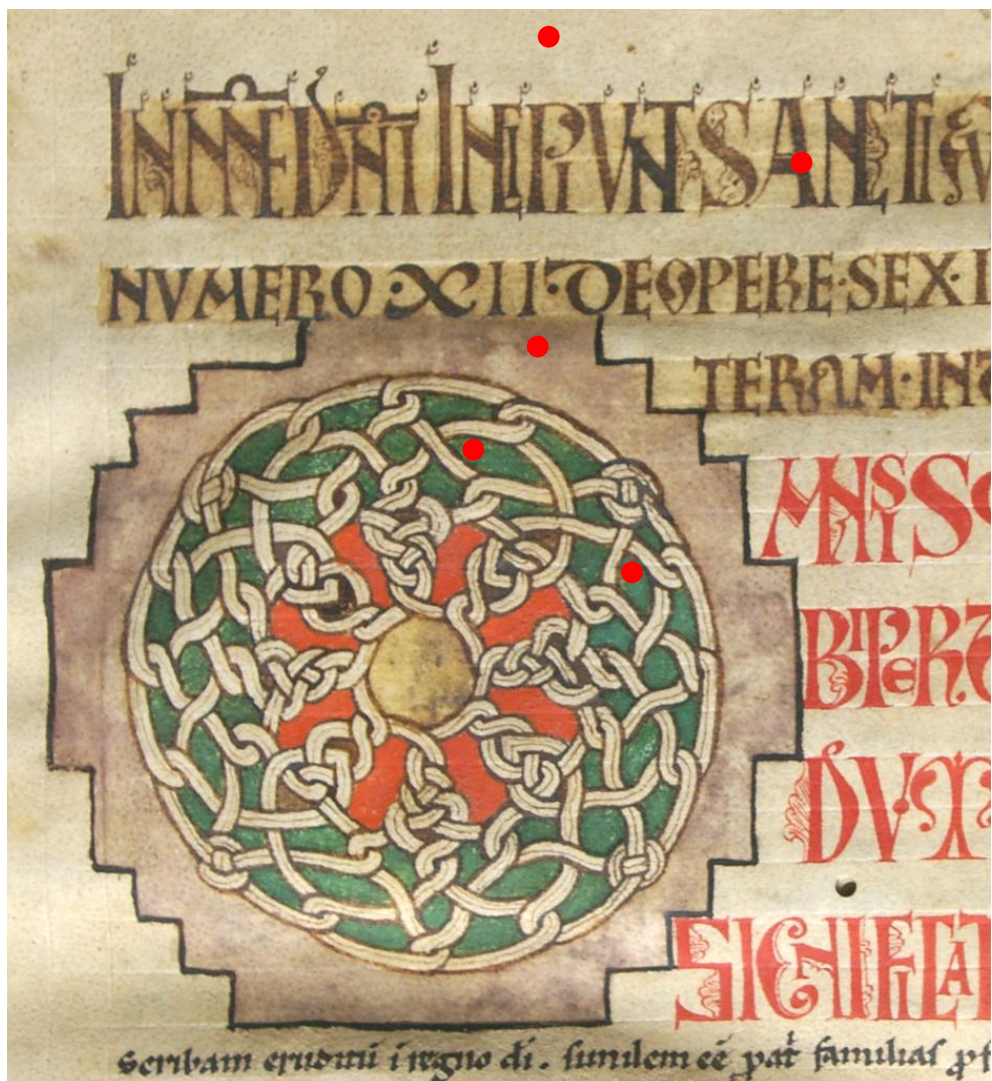 IN DNI INCIPIVNT SANCTI
NVMERO·XII·DEOPERE·SEX·
TERAM·INT
MNIS SC
BIPERT
DV
SIGNIFICAT
scribam eruditū i regno di. similem eē pat̄ familias